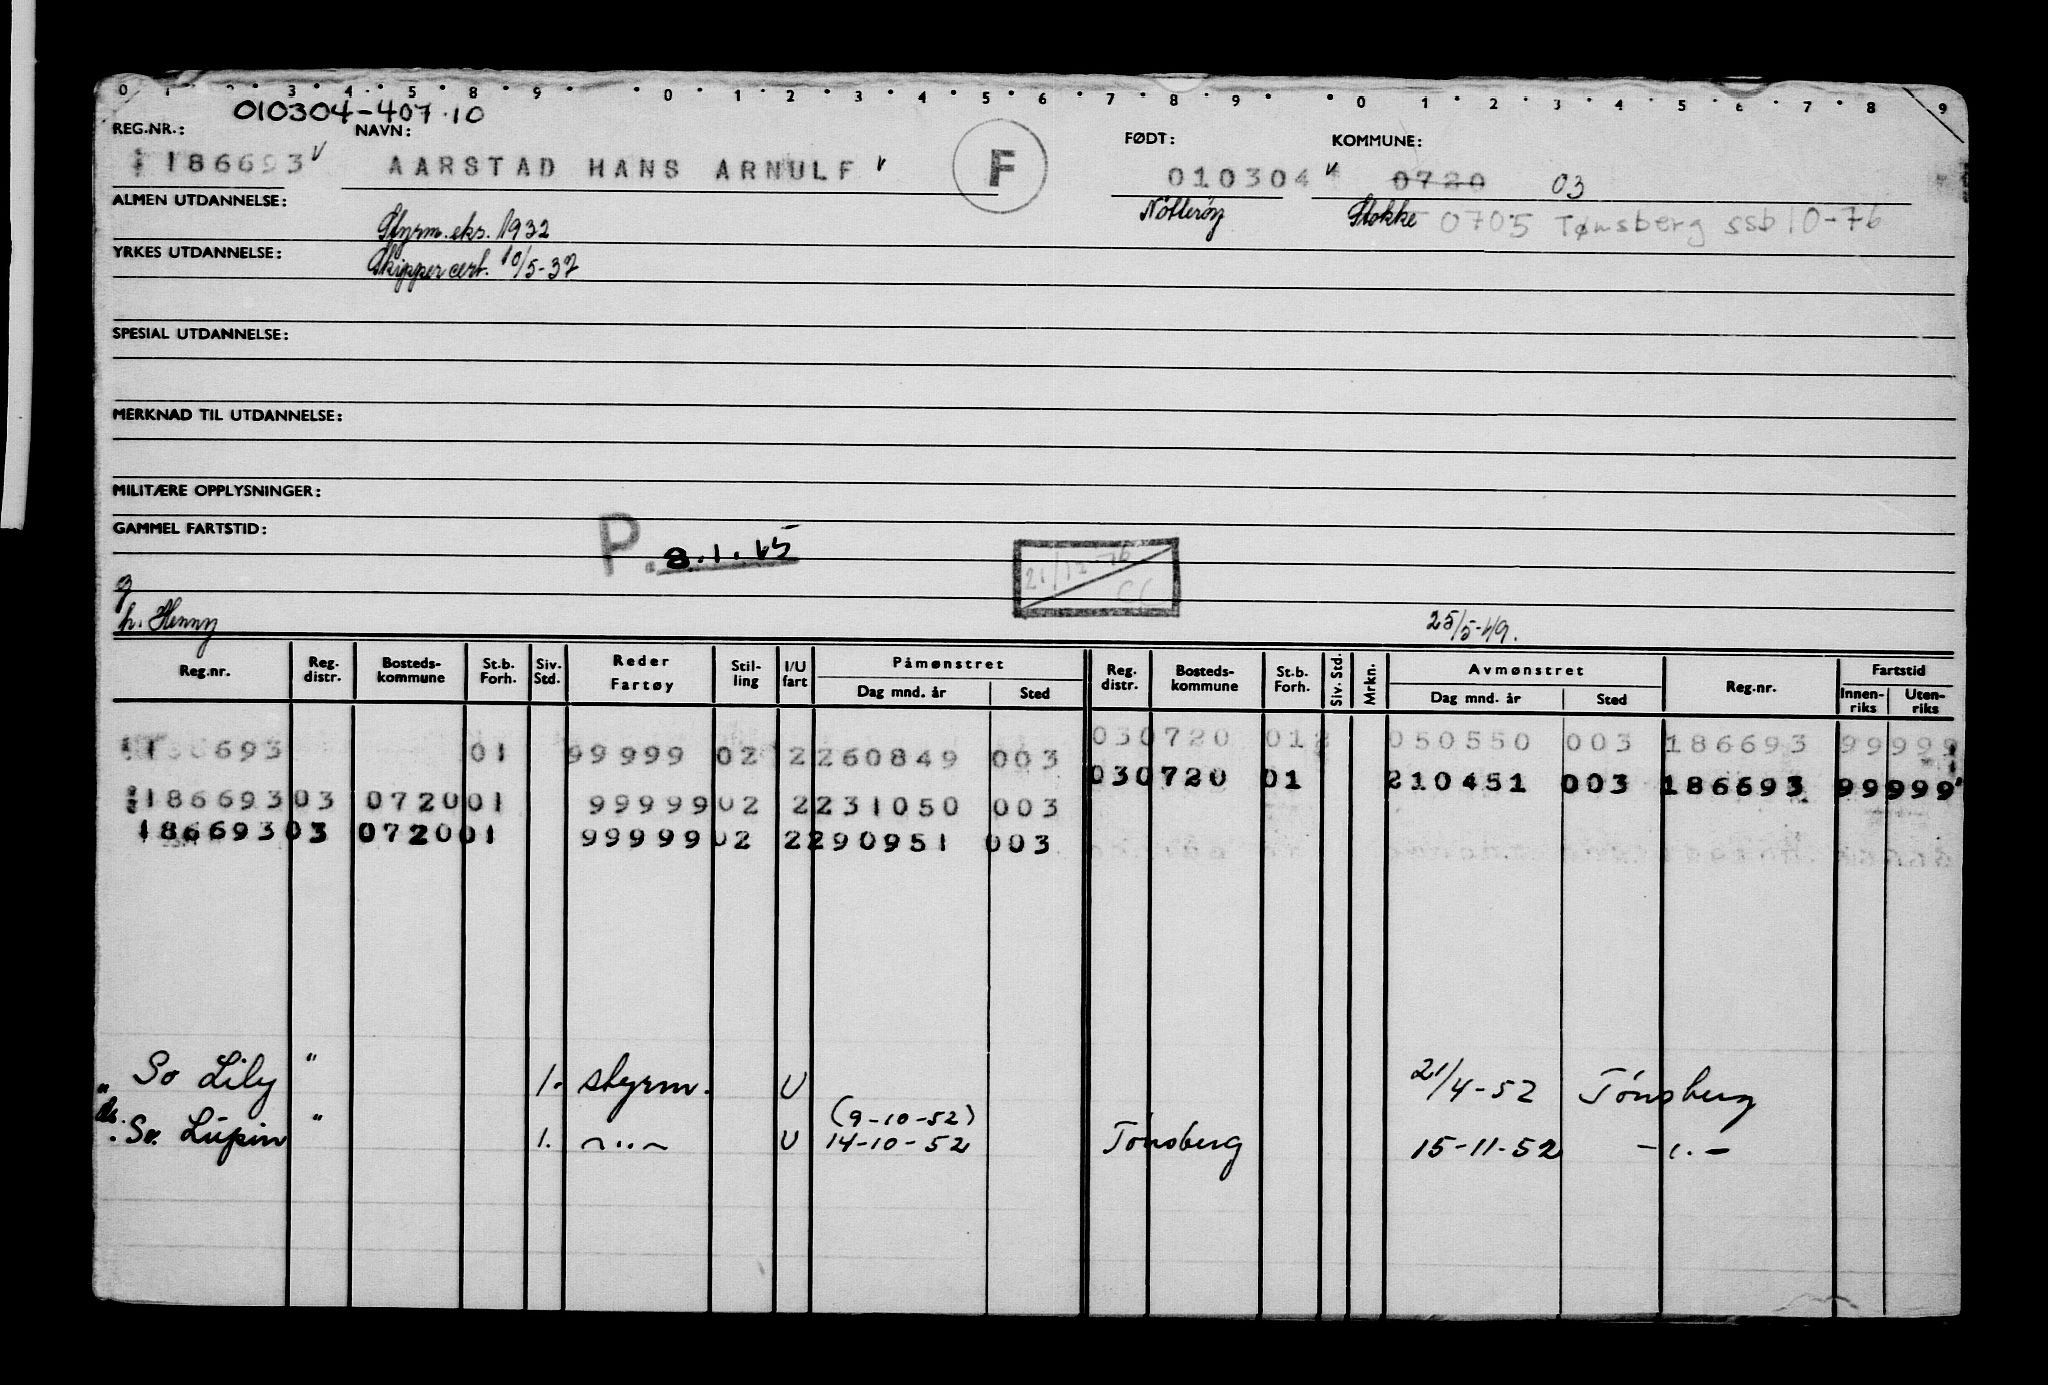 0 1 2 3 4 5 8 9 0 1 2 3 4 5 6 7 8 9 0 1 2 3 4 5 6 7 8 9
010304-407.10
REG.NR.: NAVN: FØDT: KOMMUNE:
186693 AARSTAD HANS ARNULF F 010304 0720 03
ALMEN UTDANNELSE: Styrm.eks. 1932 Nötteröy Stokke 0705 Tønsberg ssb 10-76
YRKES UTDANNELSE: Skippercert. 10/5-37
SPESIAL UTDANNELSE:
MERKNAD TIL UTDANNELSE:
MILITÆRE OPPLYSNINGER:
GAMMEL FARTSTID:
P. 8.1.65 21/12-76
g
h. Henny 25/5-49.
Reg.nr. Reg. distr. Bosteds- kommune St.b. Forh. Siv. Std. Reder Fartøy Stil- ling I/U fart Påmønstret Reg. distr. Bosteds- kommune St.b. Forh. Siv. Std. Mrkn. Avmønstret Reg.nr. Fartstid
Dag mnd. år Sted Dag mnd. år Sted Innen- riks Uten- riks
693 01 99999 02 2 260849 003 03 0720 012 050550 003 186693 99999
186693 03 0720 01 99999 02 2 231050 003 03 0720 01 210451 003 186693 99999
186693 03 0720 01 99999 02 2 290951 003
" So Lily " 1. styrm. U 21/4-52 Tönsberg
(9-10-52)
ds. So. Lupin " 1. -..- U 14-10-52 Tönsberg 15-11-52 -.-